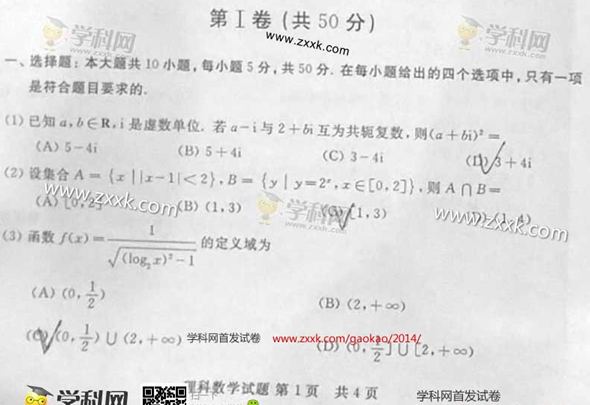 学科网
www.zxxk.com
第 I 卷 (共 50 分)
www.zxxk.com
学科网
一、选择题：本大题共 10 小题，每小题 5 分，共 50 分. 在每小题给出的四个选项中，只有一项
是符合题目要求的.
(1) 已知 a, b∈R, i 是虚数单位. 若 a−i 与 2+bi 互为共轭复数，则(a+bi)²=
(A) 5−4i (B) 5+4i (C) 3−4i (D) 3+4i
(2) 设集合 A={x||x−1|<2}, B={y|y=2ˣ, x∈[0,2]}, 则 A∩B=
(A) [0,2] (B) (1,3) (C) [1,3) (D) (1,4)
www.zxxk.com 学科网 www.zxxk.com
(3) 函数 f(x)=1/√((log₂x)²−1) 的定义域为
(A) (0, 1/2) (B) (2,+∞)
(C) (0, 1/2)∪(2,+∞) 学科网首发试卷 www.zxxk.com/gaokao/2014/ (D) (0, 1/2]∪[2,+∞)
学科网 理科数学试题 第 1 页 共 4 页 学科网首发试卷 学科网